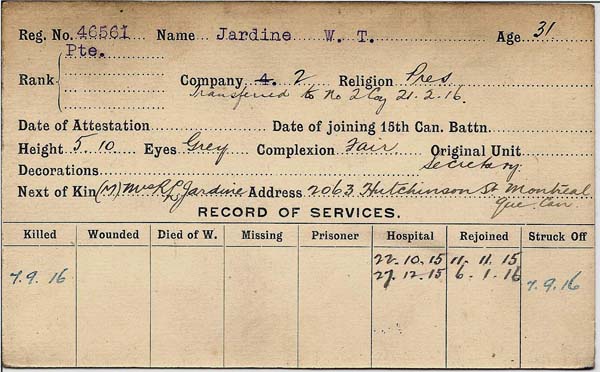 Reg. No. 46561 Name Jardine W. T. Age 31
Pte.
Rank Company 4. 2 Religion Pres
Transferred to No 2 Coy 21.2.16.
Date of Attestation Date of joining 15th Can. Battn.
Height 5.10 Eyes Grey Complexion Fair Original Unit
Decorations Secretary
Next of Kin (M) Mrs R. Jardine Address 2063 Hutchinson St Montreal
Que. Can.
RECORD OF SERVICES.
Killed Wounded Died of W. Missing Prisoner Hospital Rejoined Struck Off
22.10.15 11.11.15
7.9.16 27.12.15 6.1.16 7.9.16